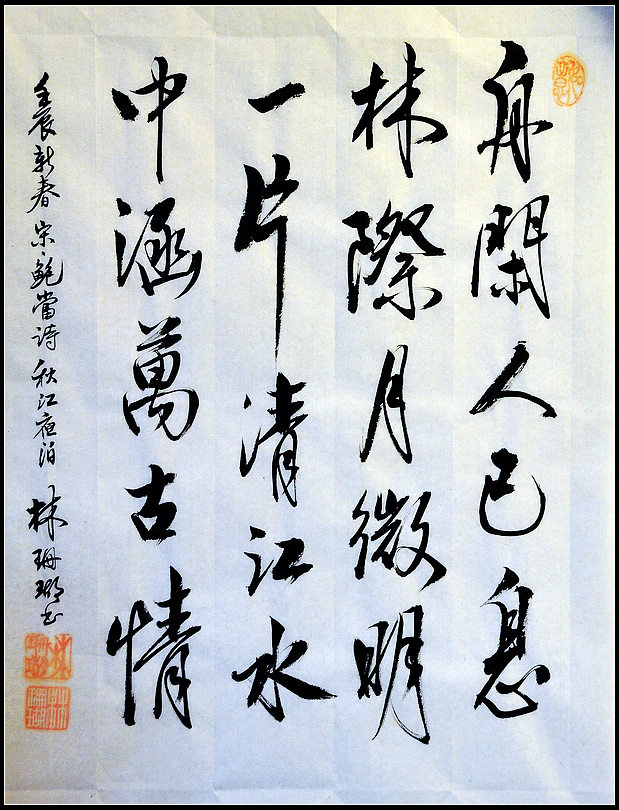 舟閑人已息
林際月微明
一片清江水
中涵萬古情
壬辰新春宋鮑當詩秋江夜泊林珊瑚書